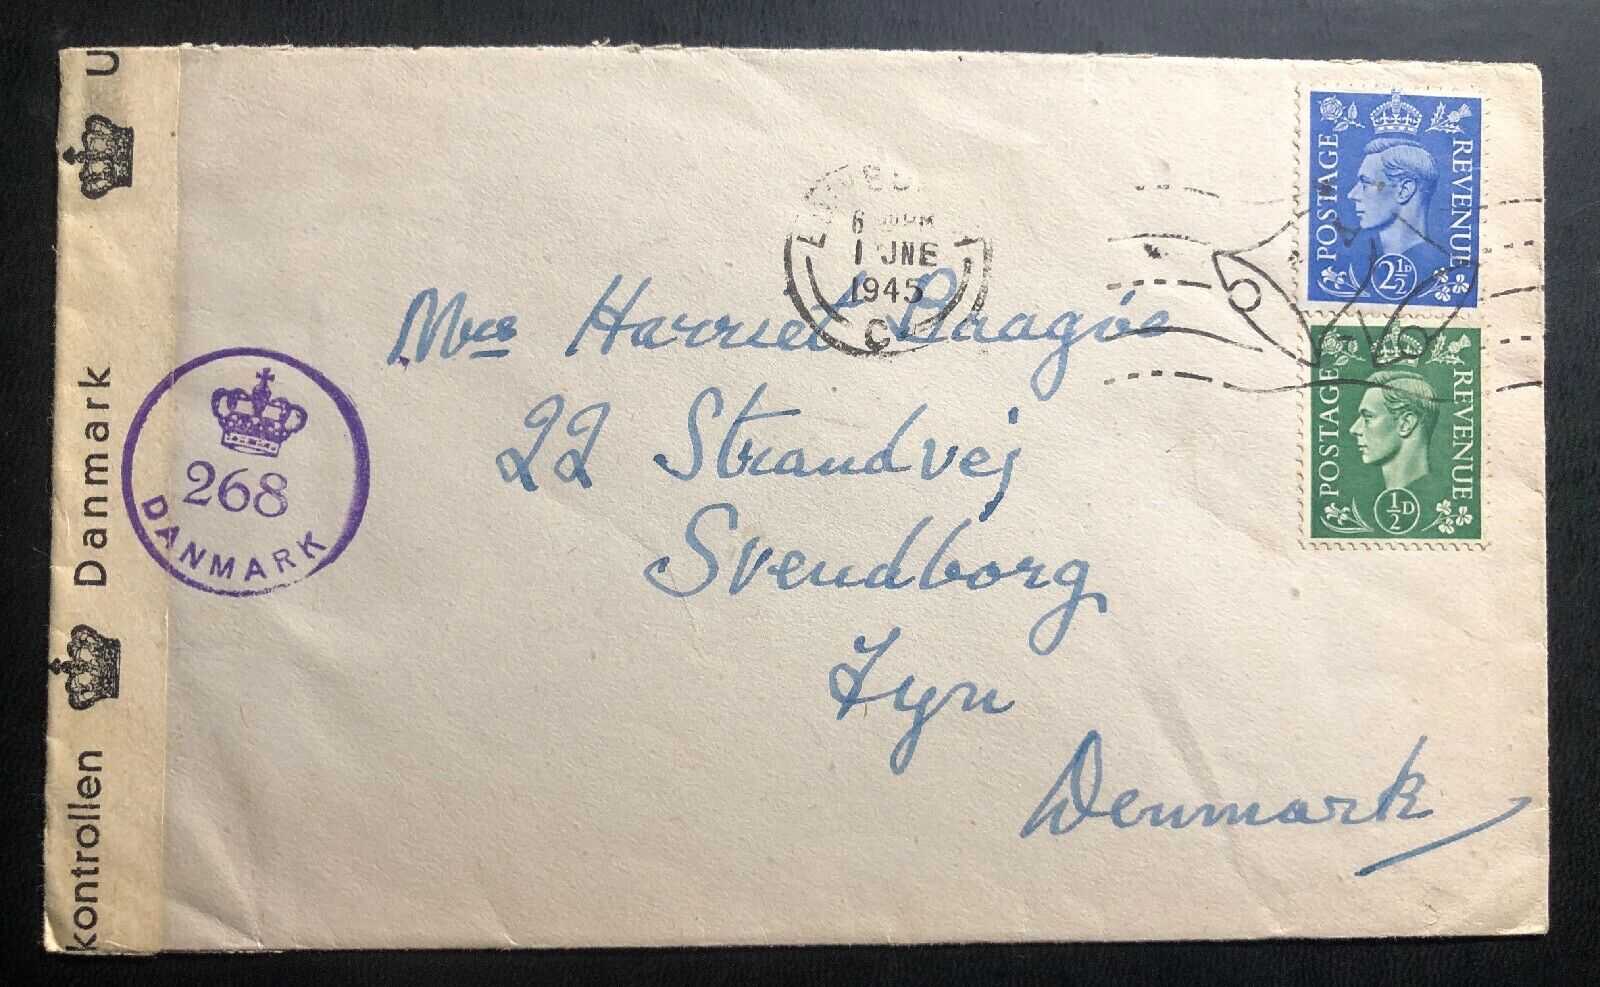 U
Danmark
kontrollen
268
DANMARK
6 PM
1 JNE
1945
C
POSTAGE REVENUE
2½D
POSTAGE REVENUE
½D
Mrs Harriet
22 Strandvej
Svendborg
Fyn
Denmark